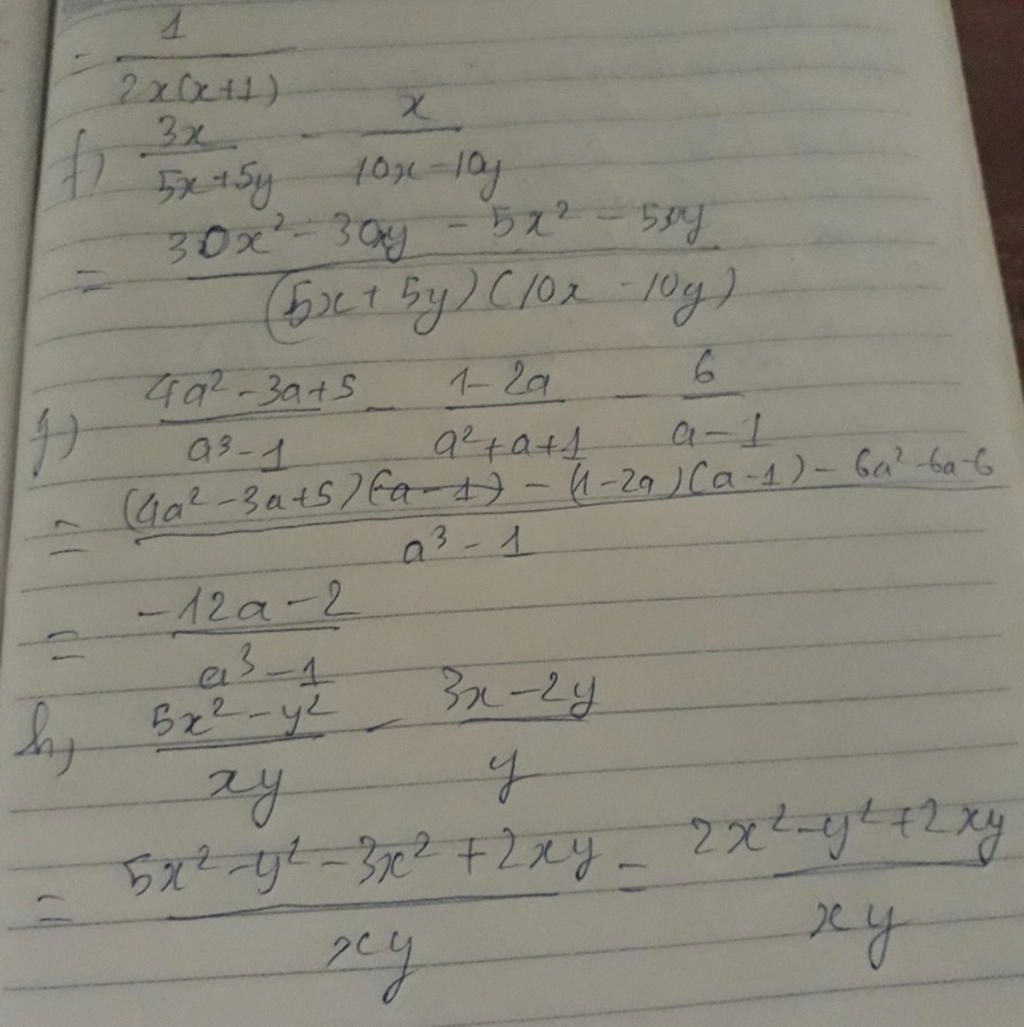 = 1/(2x(x+1))
f) 3x/(5x+5y) - x/(10x-10y)
= (30x² - 30xy - 5x² - 5xy)/((5x+5y)(10x-10y))
g) (4a²-3a+5)/(a³-1) - (1-2a)/(a²+a+1) - 6/(a-1)
= ((4a²-3a+5)(a-1) - (1-2a)(a-1) - 6a²-6a-6)/(a³-1)
= (-12a-2)/(a³-1)
h) (5x²-y²)/(xy) - (3x-2y)/y
= (5x²-y²-3x²+2xy)/(xy) = (2x²-y²+2xy)/(xy)